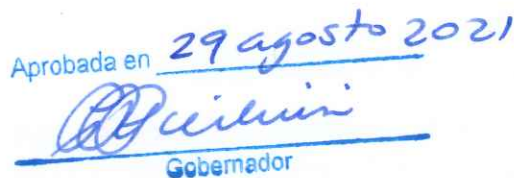 Aprobada en 29 agosto 2021
Gobernador